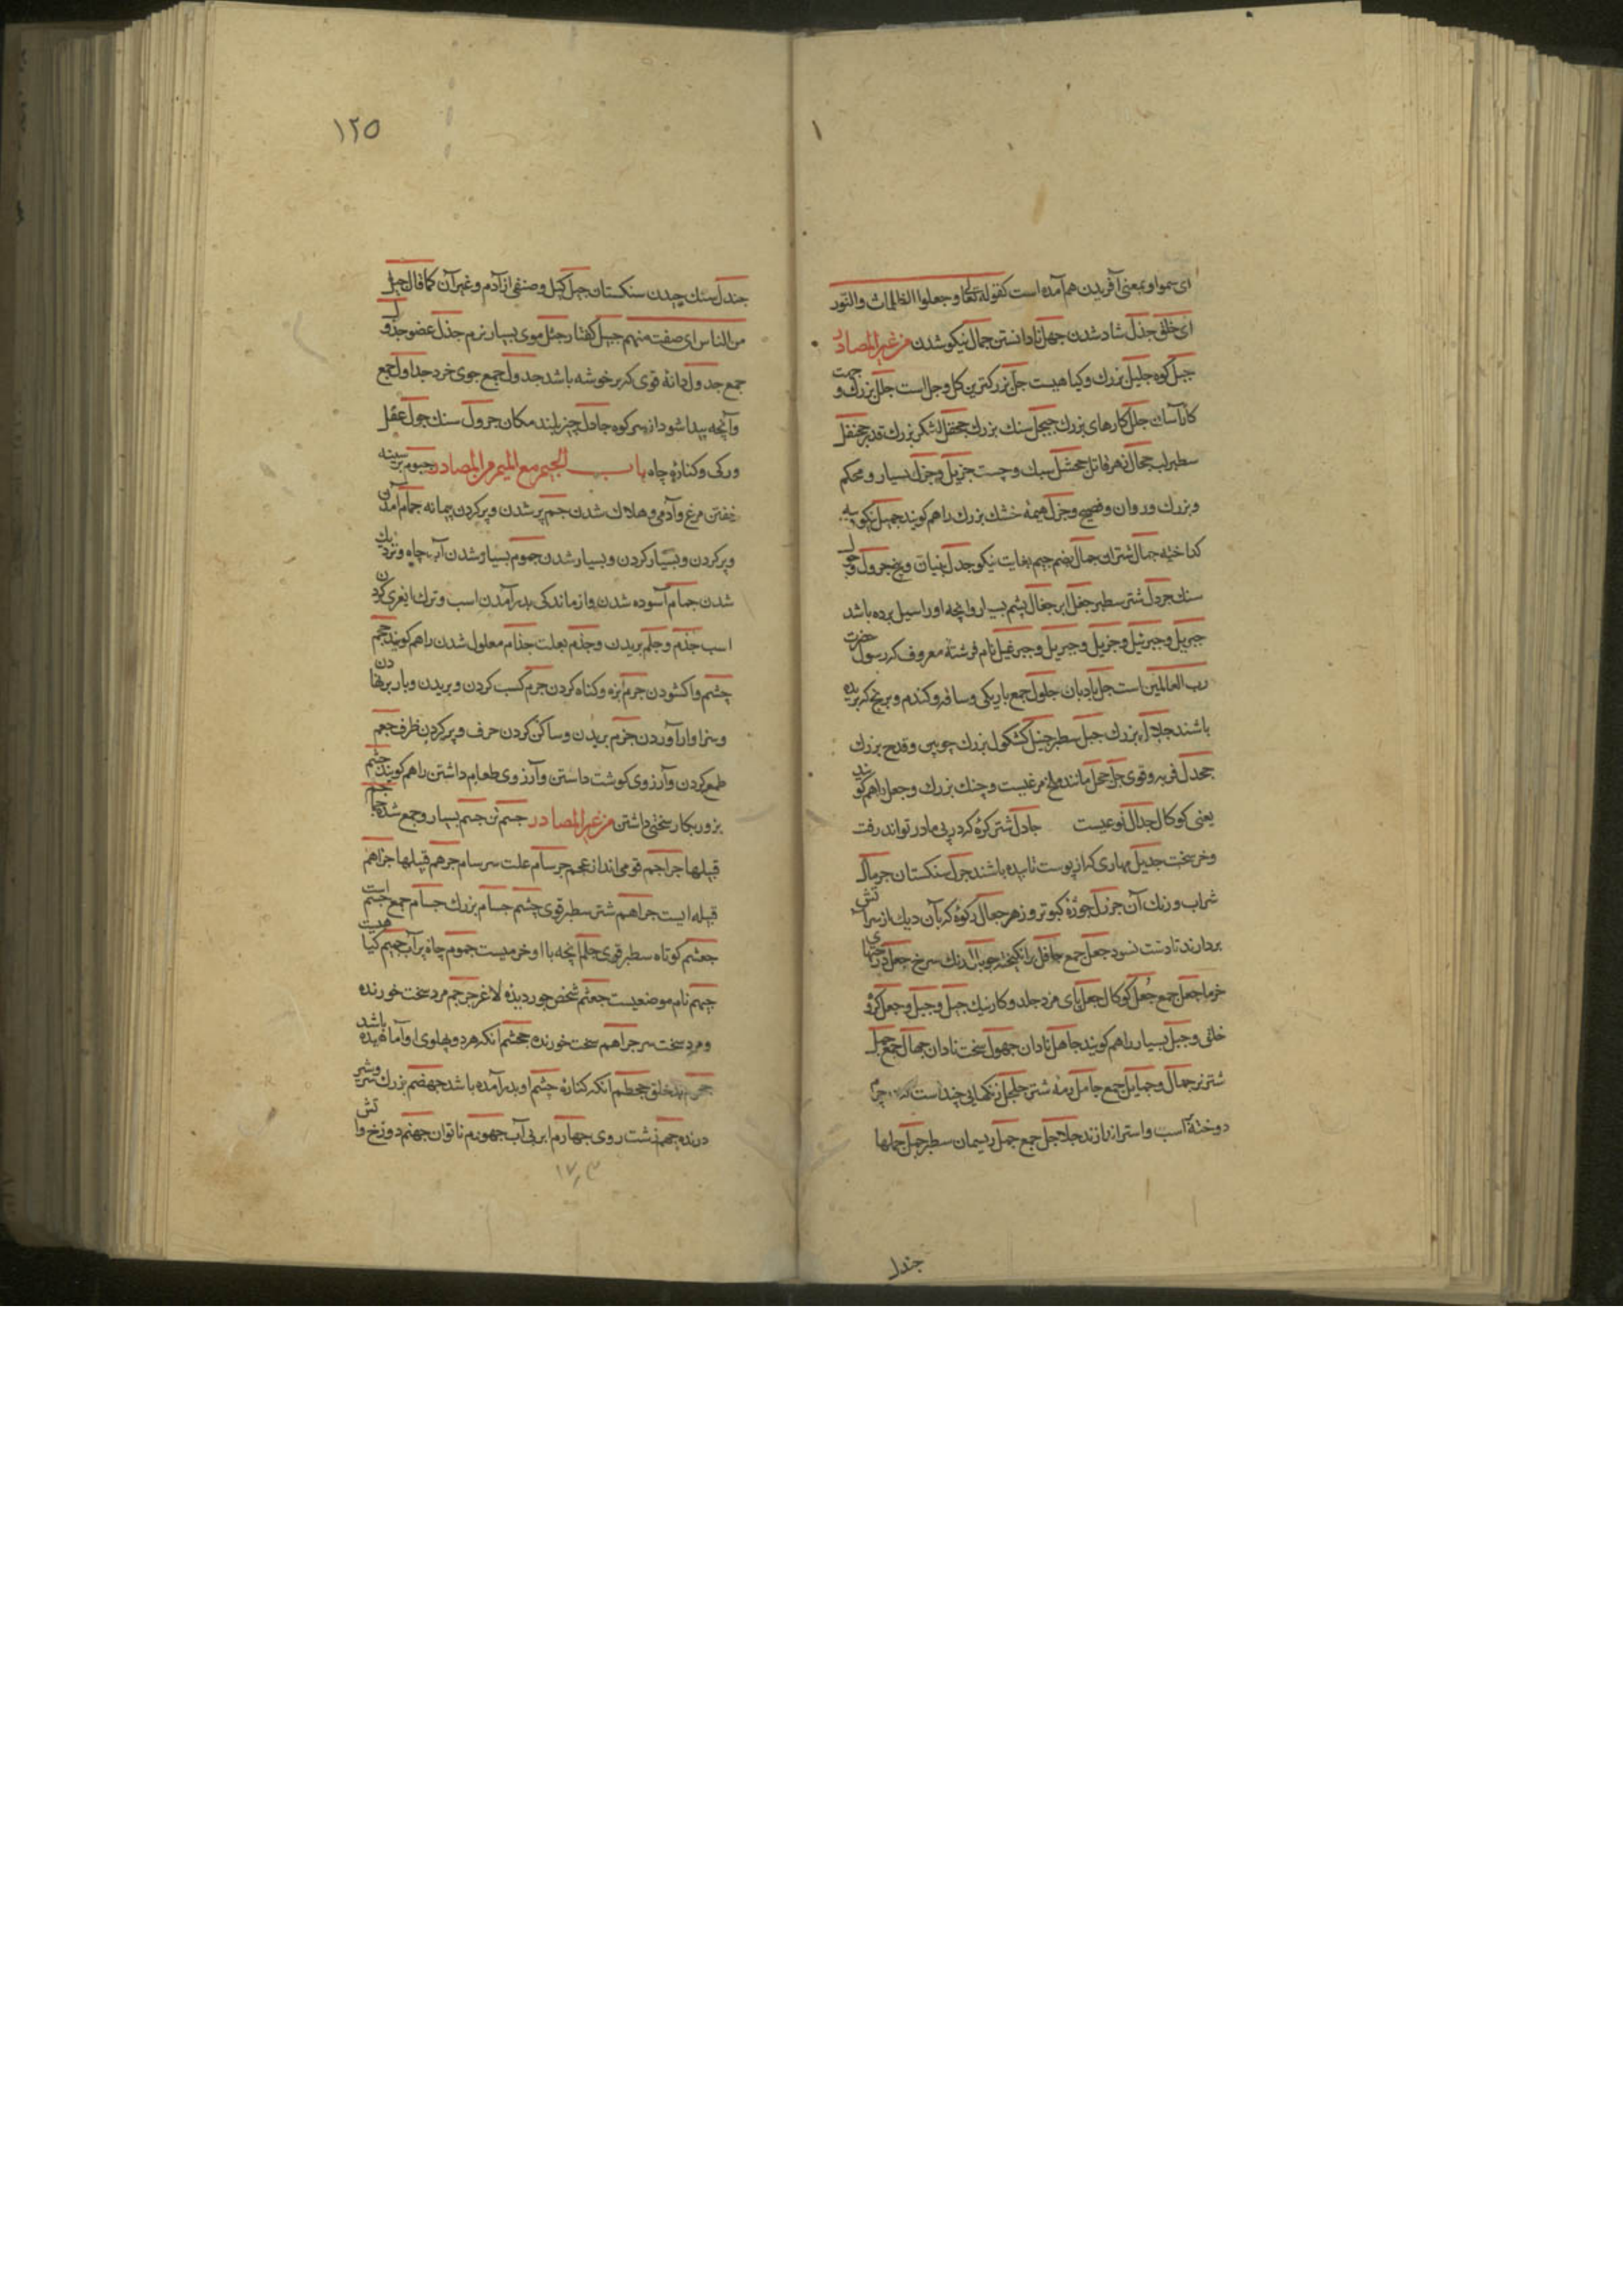 ای سموا و بمعنی آفریدن هم آمده است کقوله تعالی و جعلوا الظلمات والنور
ای خلق جذل شاد شدن جهل نادانستن جمال نیکو شدن من غیر المصادر
جبل کوه جلیل بزرك و کیاهیست جل بزرکترین کل و جل است جلل بزرك و
کار آسان جلل کارهای بزرك سنك بزرك جحفل لشکر بزرك قدر
سطبر لب جحال زهر قاتل جحشل سبك و چست جزیل و جزل بسیار و محکم
و بزرك و روان و فصیح و جزل هیمهٔ خشك بزرك را هم کویند جمیل نکو
کداخته جمال شتران جمال بضم جیم بغایت نیکو جدل بنیات جرول و
سنك جردل شتر سطبر جفل ابر جفال پشم بسیار و انچه او را سیل برده باشد
جبریل و جبرئیل و جزیل و جبریل و جبرغیل نام فرشتهٔ معروف که رسول حضرت
رب العالمین است جل بادبان جلول جمع باریکی و ساقه و کندم و برنج که بریده
باشند بزرك جبل سطبر جنبل کشکول بزرك چوبین و قدح بزرك
جحدل فربه و قوی جل حجل مانند ملخ مرغیست و چنك بزرك و جعل را هم کویند
یعنی کوکال جدال نوعیست جادل شتر کره که در پی مادر تواند رفت
و خر سخت جدیل مهاری که از پوست تابیده باشند جرل سنکستان جرمال
شراب و رنك آن جوزل جوزهٔ کبوتر و زهر جعال رکوهٔ که بآن دیك از سر آتش
بردارند تا دست نسوزد جعل جمع جافل برانکیخته جریال رنك سرخ جعل درختهای
خرما جعل جمع جعل کوکال جعل پای مزد جلد و کار نیك جبل و جبل و جعل کروه
خلق و جبل بسیار را هم کویند جاهل نادان جهول سخت نادان جهال جمع جمل
شتر نر جمال و جمایل جمع جامل رمهٔ شتر جلجل زنکهایی چند است که
دوخته اسب و استر اندازند جلاجل جمع جمل ریسمان سطبر جمل جملها
جندل
۱۲۵
جندل سنك چیدن سنکستان جبل کپل و صنفی از آدم و غیر آن کما قال جبل
من الناس ای صفت منهم جیل کفتار جثل موی بسیار نرم جذل عضو جذول
جمع جدول دانهٔ قوی که بر خوشه باشد جدول جمع جوی خرد جداول جمع
و آنچه پیدا شود از سر کوه جادل چیز بلند مکان جرول سنك جول عقل
و رکی و کنارهٔ چاه باب الجیم مع المیم من المصادر جثوم بر سینه
خفتن مرغ و آدمی و هلاك شدن جم پر شدن و پر کردن پیمانه جمام آمدن
و پر کردن و بسیار کردن و بسیار شدن جموم بسیار شدن آب چاه و نزدیك
شدن جمام آسوده شدن و از ماندکی بدر آمدن اسب و ترك ایغری کردن
اسب جذم و جلم بریدن و جذم بعلت جذام معلول شدن را هم کویند جحم
چشم واکشودن جرم بزه و کناه کردن جرم کسب کردن و بریدن و بار
و سزاوار آوردن جزم بریدن و ساکن کردن حرف و پر کردن ظرف جعم
طمع کردن و آرزوی کوشت داشتن و آرزوی طعام داشتن را هم کویند جشم
بزور بکار سختی داشتن من غیر المصادر جسم تن جم بسیار و جمع شده
قبیلها جراجم قومی اند از عجم جرسام علت سرسام جرهم قبیلها جراهم
قبیله ایست جراهم شتر سطبر قوی چشم جسام بزرك جسام جمع جسم است
جعشم کوتاه سطبر قوی جلم انچه با او خر میست جموم چاه پر آب جمیم کیاهیست
جیهم نام موضعیست جعثم شخص لاغر جرجم مرد سخت خورنده
و مرد سخت سر جراهم سخت خورنده جحشم آنکه هر دو پهلوی او آماهیده باشد
بد خلق جحظم آنکه کنارهٔ چشم او بدر آمده باشد جهضم بزرك سر و شیر
درنده جهم زشت روی جهام ابر بی آب جهورم ناتوان جهنم دوزخ و آتش